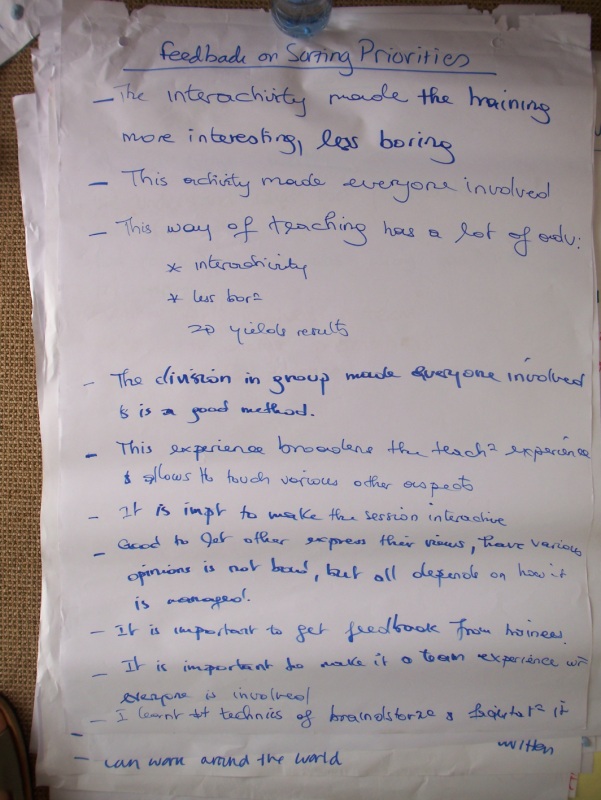 feedback on Sorting Priorities
– The interactivity made the training
more interesting, less boring
– This activity made everyone involved
– This way of teaching has a lot of adv:
* interactivity
* less bor²
yields results
- The division in group made everyone involved
& is a good method.
- This experience broadens the teach² experience
& allows to touch various other aspects
- It is impt to make the session interactive
- Good to let other express their views, have various
opinions is not bad, but all depends on how it
is managed.
- It is important to get feedback from trainees.
- It is important to make it a team experience
everyone is involved
- I learnt technics of it
written
-
- can work around the world